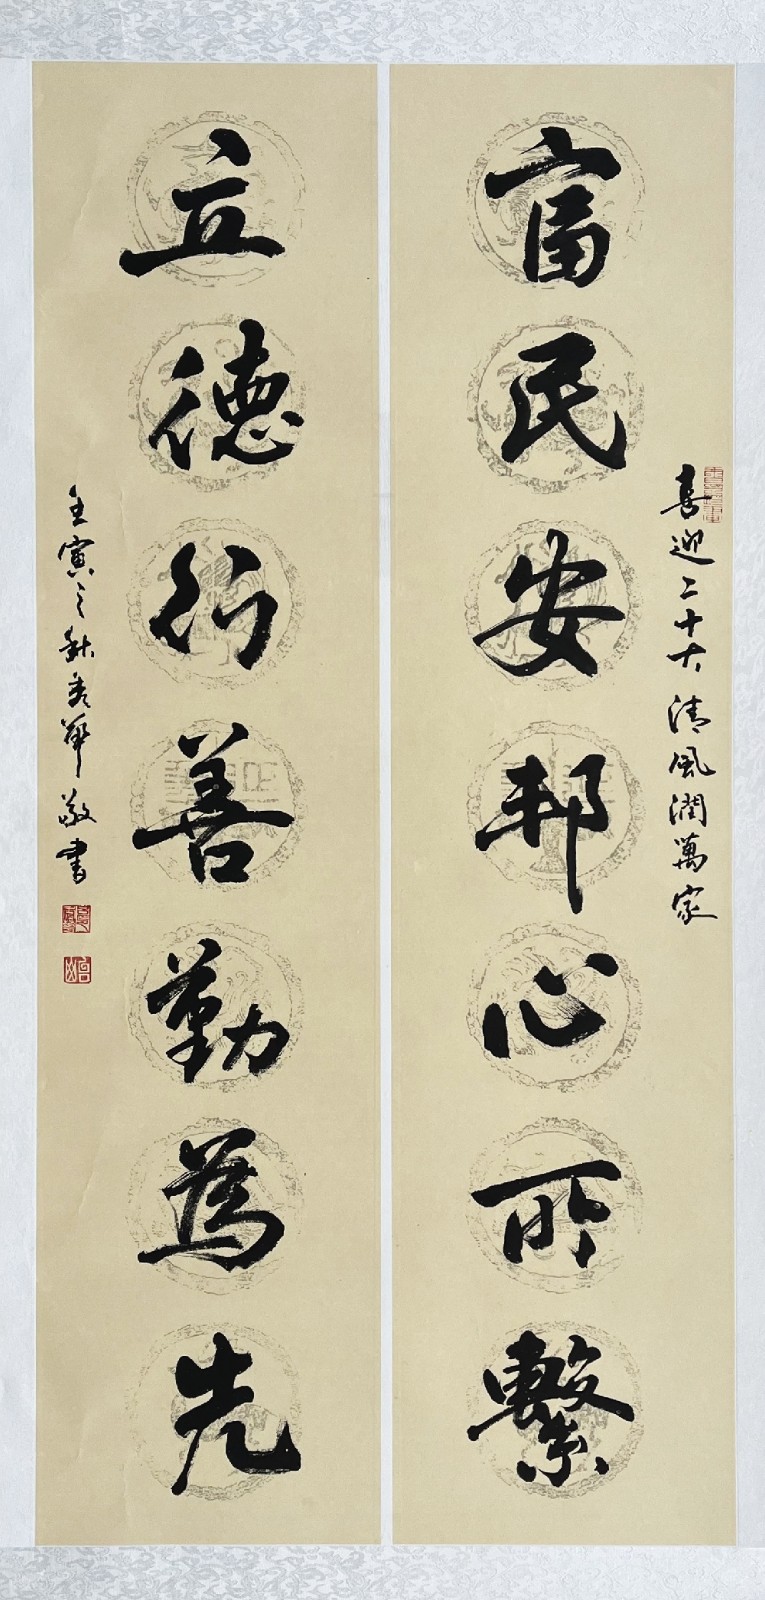 喜迎二十大清風潤萬家
富民安邦心所繫
立德行善勤為先
壬寅之秋秀華敬書